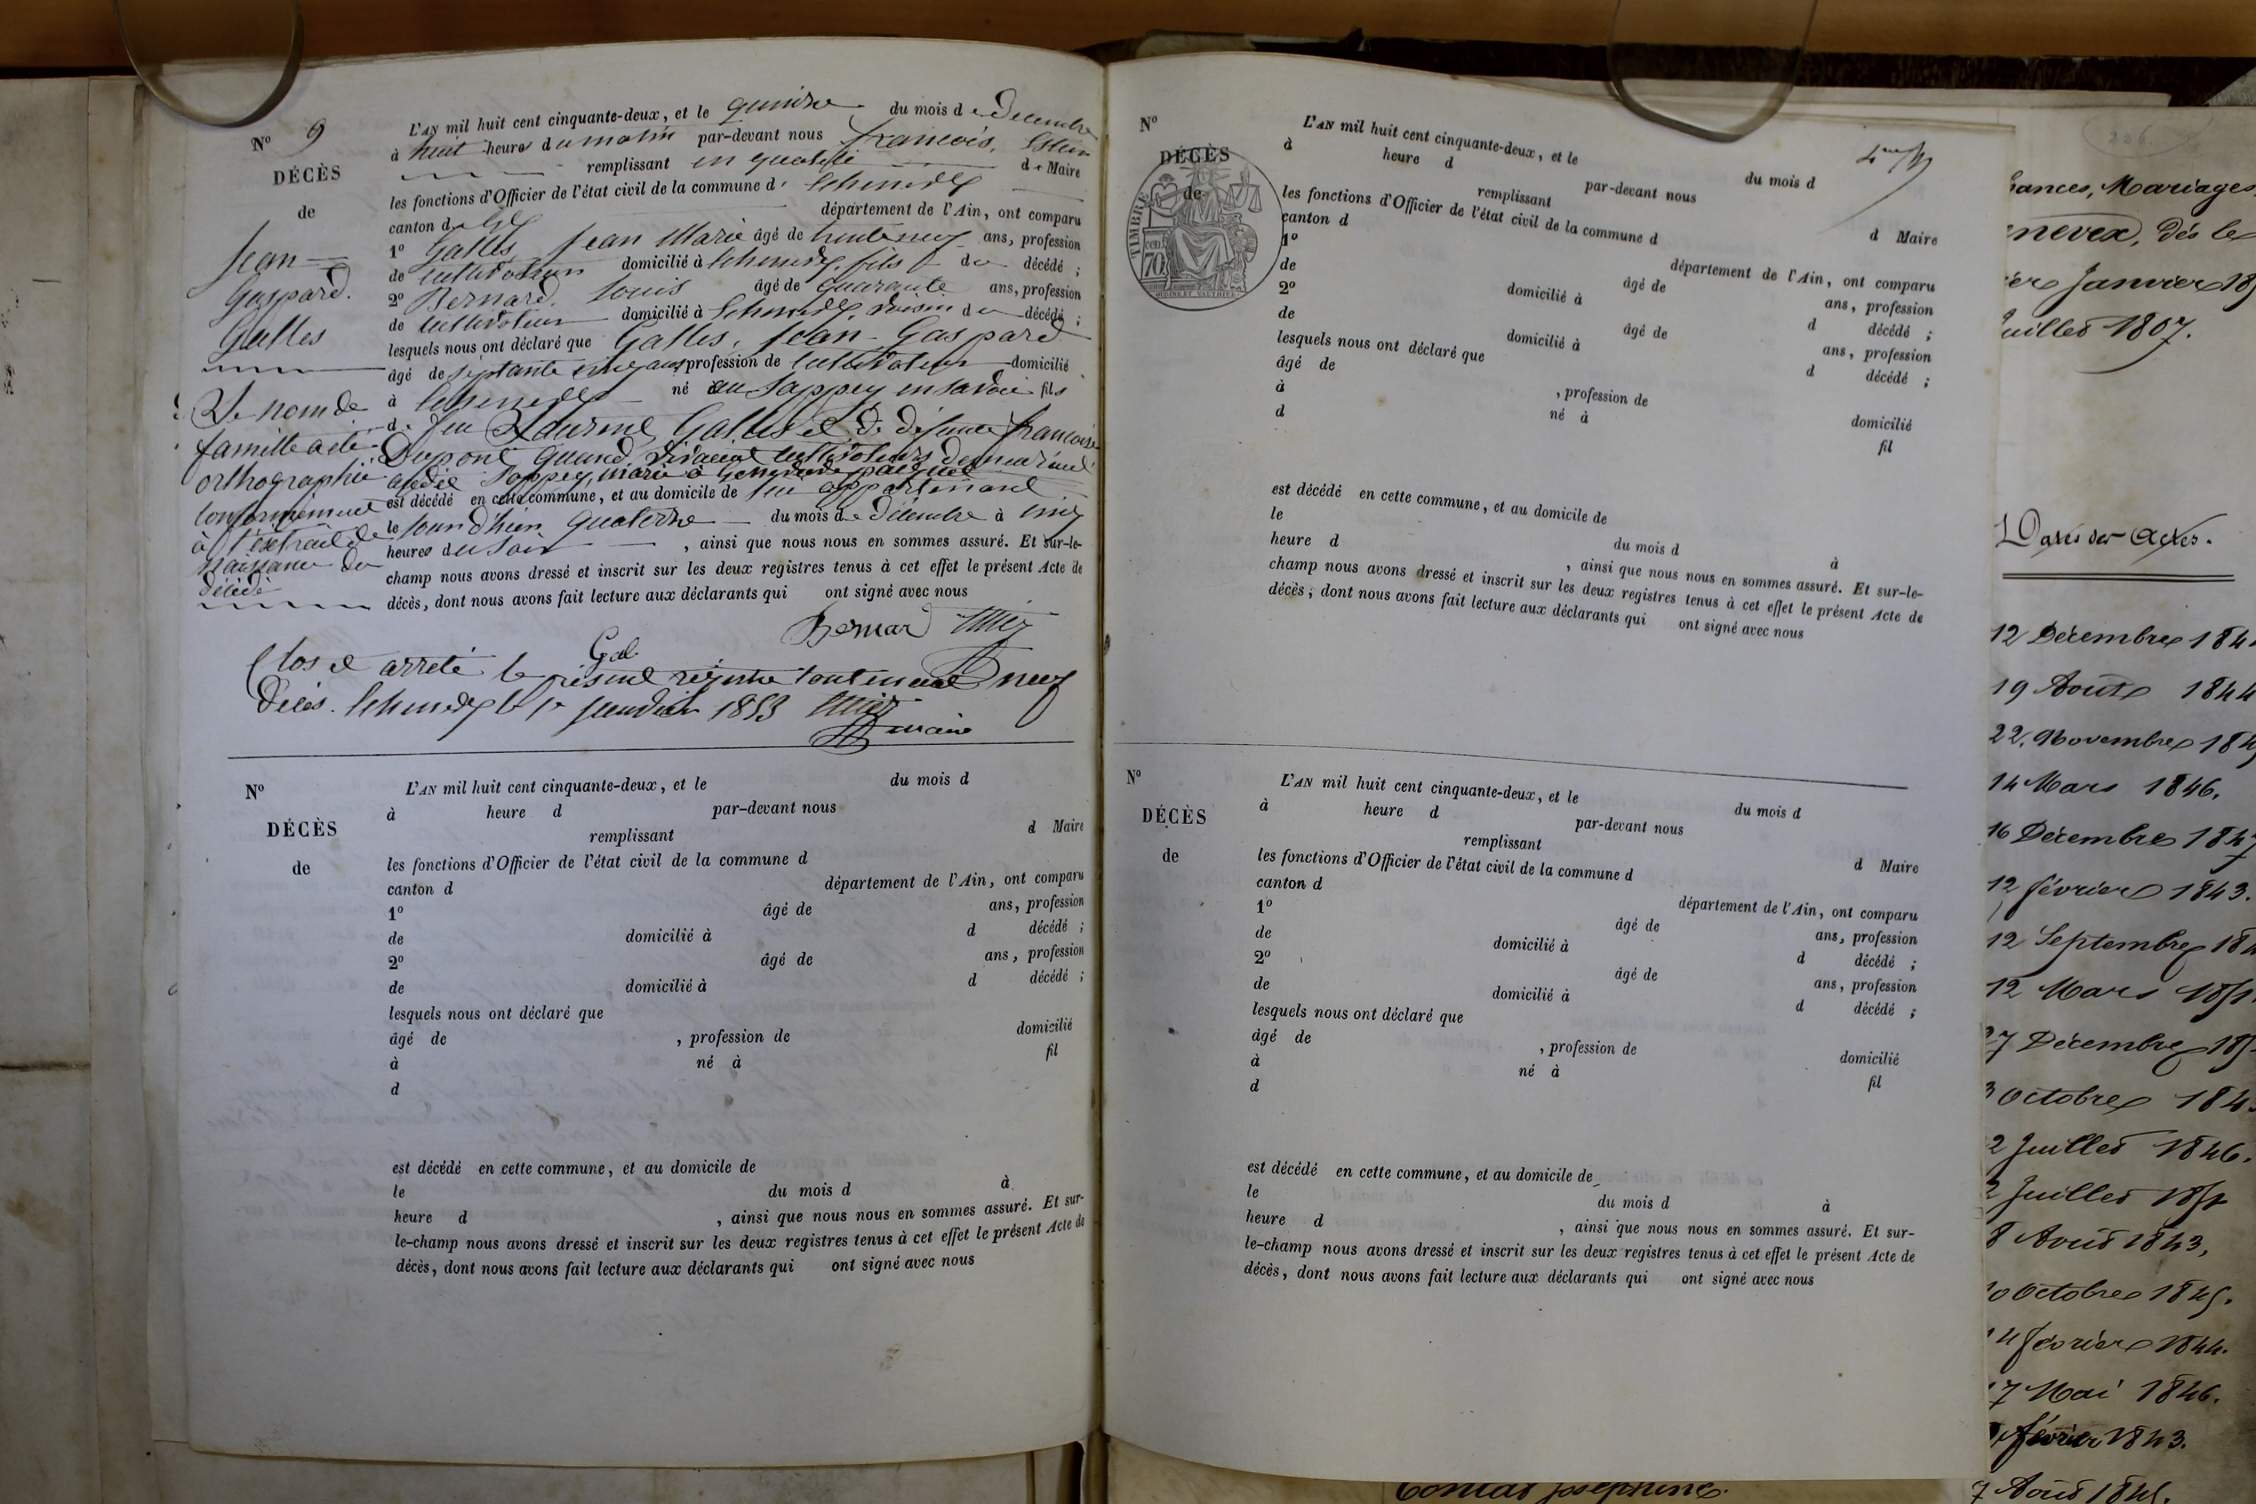 Nº 9
DÉCÈS
de
Jean
Gaspard.
Galles
Le nom de
famille a été
orthographié
conformément
à l'extrait de
naissance du
décédé
L'AN mil huit cent cinquante-deux, et le quinze du mois de Décembre
à huit heures du matin par-devant nous françois,
remplissant en qualité de Maire
les fonctions d'Officier de l'état civil de la commune d'
canton de département de l'Ain, ont comparu
1º Gallis Jean Marie âgé de trente neuf ans, profession
de cultivateur domicilié à fils du décédé ;
2º Bernard Louis âgé de quarante ans, profession
de cultivateur domicilié à voisin du décédé ;
lesquels nous ont déclaré que Galles, Jean-Gaspard
âgé de septante cinq ans, profession de cultivateur domicilié
à né au Sappey en savoie fils
de feu Galles et de défunte françoise
Dupont quand vivaient cultivateurs demeurant
audit Sappey, marié à
est décédé en cette commune, et au domicile de lui appartenant
le jour d'hier quatorze du mois de Décembre à cinq
heures du soir , ainsi que nous nous en sommes assuré. Et sur-le-
champ nous avons dressé et inscrit sur les deux registres tenus à cet effet le présent Acte de
décès, dont nous avons fait lecture aux déclarants qui ont signé avec nous
Bernard
Gal
Clos et arrêté le présent registre contenant neuf
Décès. le 1er Janvier 1853
maire
Nº
DÉCÈS
de
L'AN mil huit cent cinquante-deux, et le du mois d
à heure d par-devant nous
remplissant d Maire
les fonctions d'Officier de l'état civil de la commune d
canton d département de l'Ain, ont comparu
1º âgé de ans, profession
de domicilié à d décédé ;
2º âgé de ans, profession
de domicilié à d décédé ;
lesquels nous ont déclaré que
âgé de , profession de domicilié
à né à fil
d
est décédé en cette commune, et au domicile de
le du mois d à
heure d , ainsi que nous nous en sommes assuré. Et sur-
le-champ nous avons dressé et inscrit sur les deux registres tenus à cet effet le présent Acte de
décès, dont nous avons fait lecture aux déclarants qui ont signé avec nous
Nº
DÉCÈS
de
TIMBRE
70
L'AN mil huit cent cinquante-deux, et le du mois d
à heure d par-devant nous
remplissant d Maire
les fonctions d'Officier de l'état civil de la commune d
canton d département de l'Ain, ont comparu
1º âgé de ans, profession
de domicilié à d décédé ;
2º âgé de ans, profession
de domicilié à d décédé ;
lesquels nous ont déclaré que
âgé de , profession de domicilié
à né à fil
d
est décédé en cette commune, et au domicile de
le du mois d à
heure d , ainsi que nous nous en sommes assuré. Et sur-le-
champ nous avons dressé et inscrit sur les deux registres tenus à cet effet le présent Acte de
décès, dont nous avons fait lecture aux déclarants qui ont signé avec nous
Nº
DÉCÈS
de
L'AN mil huit cent cinquante-deux, et le du mois d
à heure d par-devant nous
remplissant d Maire
les fonctions d'Officier de l'état civil de la commune d
canton d département de l'Ain, ont comparu
1º âgé de ans, profession
de domicilié à d décédé ;
2º âgé de ans, profession
de domicilié à d décédé ;
lesquels nous ont déclaré que
âgé de , profession de domicilié
à né à fil
d
est décédé en cette commune, et au domicile de
le du mois d à
heure d , ainsi que nous nous en sommes assuré. Et sur-
le-champ nous avons dressé et inscrit sur les deux registres tenus à cet effet le présent Acte de
décès, dont nous avons fait lecture aux déclarants qui ont signé avec nous
ances, Mariages,
nevex, dès le
Janvier 18
uillet 1807.
Dates des Actes.
12 Décembre 184
19 Août 1844
22 Novembre 184
14 Mars 1846.
16 Décembre 1847
12 février 1843.
12 Septembre 184
12 Mars 1851
27 Décembre 185
3 Octobre 184
2 Juillet 1846.
2 Juillet 1851
8 Août 1843,
10 Octobre 1845.
14 février 1844.
17 Mai 1846.
février 1843.
7 Août 1845.
Contat Joséphine.